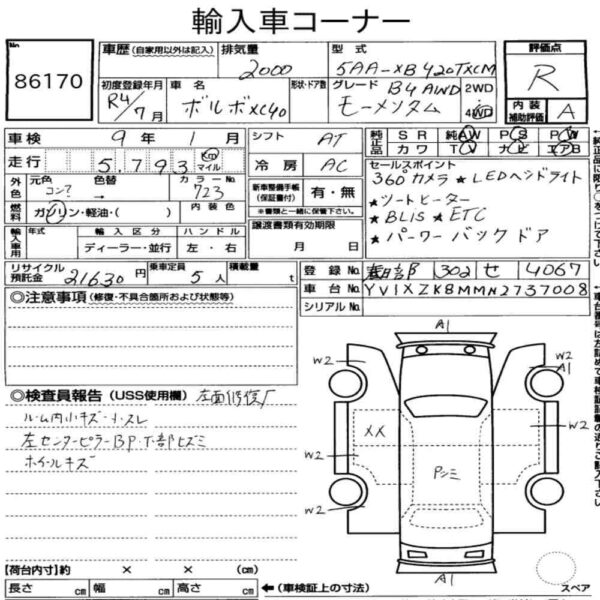 輸入車コーナー
No
86170
車歴 (自家用以外は記入)
排気量
2000
型式
5AA-XB420TXCM
評価点
R
内装
補助評価
A
初度登録年月
R4/7月
車名
ボルボXC40
形状・ドア数
グレード
B4 AWD
モーメンタム
2WD
4WD
車検
9年1月
シフト
AT
純正品
SR
純AW
PS
PW
カワ
TV
ナビ
エアB
走行
5,793
Km
マイル
冷房
AC
セールスポイント
360°カメラ ★LEDヘッドライト
★シートヒーター
★BLIS ★ETC
★パワーバックドア
外色
元色
色替
カラーNo
723
新車整備手帳
(保証書付)
有・無
※書類と一緒に保管下さい。
燃料
ガソリン・軽油・( )
内装色
譲渡書類有効期限
月 日
輸入車用
年式
輸入区分
ハンドル
ディーラー・並行
左・右
リサイクル
預託金
21630円
乗車定員
5人
積載量
t
登録No.
春日部
302
せ
4067
車台No.
YV1XZK8MMN2737008
シリアルNo.
◎注意事項 (修復・不具合箇所および状態等)
◎検査員報告 (USS使用欄)
左面修復厂
ルーム内小キズ・小スレ
左センターピラーBP.下部ヒズミ
ホイールキズ
A1
W2
W2
A1
XX
Pシミ
W2
W2
W2
W2
A1
スペア
【荷台内寸】約 × × (cm)
長さ cm
幅 cm
高さ cm
←(車検証上の寸法)